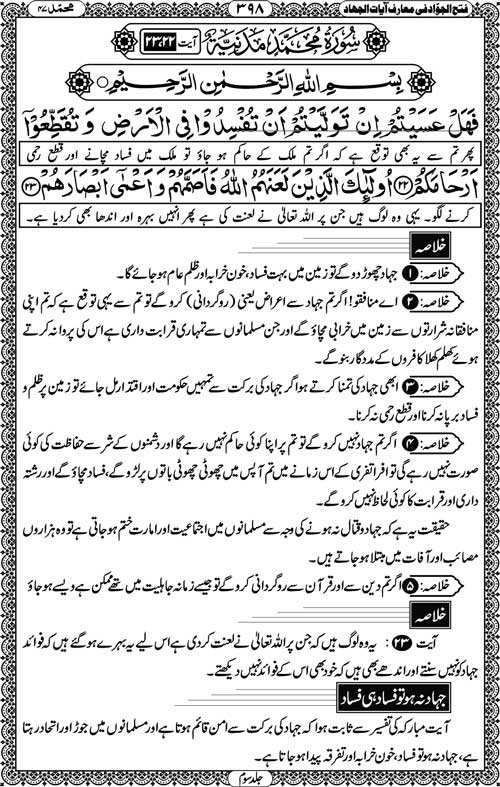 فتح الجوّاد فی معارف آیات الجهاد
۳۹۸
محمّد ۴۷
سُوْرَةُ مُحَمَّدٍ مَدَنِيَّةٌ آیت ۲۳،۲۲
بِسْمِ اللهِ الرَّحْمٰنِ الرَّحِيْمِ
فَهَلْ عَسَيْتُمْ اِنْ تَوَلَّيْتُمْ اَنْ تُفْسِدُوْا فِي الْاَرْضِ وَتُقَطِّعُوْٓا
پھر تم سے یہ بھی توقع ہے کہ اگر تم ملک کے حاکم ہو جاؤ تو ملک میں فساد مچانے اور قطع رحمی
اَرْحَامَكُمْ ﴿۲۲﴾ اُولٰٓئِكَ الَّذِيْنَ لَعَنَهُمُ اللهُ فَاَصَمَّهُمْ وَاَعْمٰٓى اَبْصَارَهُمْ ﴿۲۳﴾
کرنے لگو۔ یہی وہ لوگ ہیں جن پر اللہ تعالیٰ نے لعنت کی ہے پھر انہیں بہرہ اور اندھا بھی کردیا ہے۔
خلاصہ
خلاصہ: ۱ جہاد چھوڑ دو گے تو زمین میں بہت فساد، خون خرابہ اور ظلم عام ہو جائے گا۔
خلاصہ: ۲ اے منافقو! اگر تم جہاد سے اعراض یعنی (روگردانی) کرو گے تو تم سے یہی توقع ہے کہ تم اپنی
منافقانہ شرارتوں سے زمین میں خرابی مچاؤ گے اور جن مسلمانوں سے تمہاری قرابت داری ہے اس کی پروا نہ کرتے
ہوئے کھلم کھلا کافروں کے مددگار بنو گے۔
خلاصہ: ۳ ابھی جہاد کی تمنا کرتے ہو اگر جہاد کی برکت سے تمہیں حکومت اور اقتدار مل جائے تو زمین پر ظلم و
فساد برپا نہ کرنا اور قطع رحمی نہ کرنا۔
خلاصہ: ۴ اگر تم جہاد نہیں کرو گے تو تم پر اپنا کوئی حاکم نہیں رہے گا اور دشمنوں کے شر سے حفاظت کی کوئی
صورت نہیں رہے گی تو افراتفری کے اس زمانے میں تم آپس میں چھوٹی چھوٹی باتوں پر لڑو گے، فساد مچاؤ گے اور رشتہ
داری اور قرابت کا کوئی لحاظ نہیں کرو گے۔
حقیقت یہ ہے کہ جہاد و قتال نہ ہونے کی وجہ سے مسلمانوں میں اجتماعیت اور امارت ختم ہو جاتی ہے تو وہ ہزاروں
مصائب اور آفات میں مبتلا ہو جاتے ہیں۔
خلاصہ: ۵ اگر تم دین سے اور قرآن سے روگردانی کرو گے تو جیسے زمانہ جاہلیت میں تھے ممکن ہے ویسے ہو جاؤ
خلاصہ
آیت ۲۳: یہ وہ لوگ ہیں کہ جن پر اللہ تعالیٰ نے لعنت کردی ہے اس لیے یہ بہرے ہو گئے ہیں کہ فوائد
جہاد کو نہیں سنتے اور اندھے بھی ہیں کہ خود بھی اس کے فوائد نہیں دیکھتے۔
جہاد نہ ہو تو فساد ہی فساد
آیت مبارکہ کی تفسیر سے ثابت ہوا کہ جہاد کی برکت سے امن قائم ہوتا ہے اور مسلمانوں میں جوڑ اور اتحاد رہتا
ہے، جہاد نہ ہو تو فساد، خون خرابہ اور تفرقہ پیدا ہو جاتا ہے۔
جلد سوم